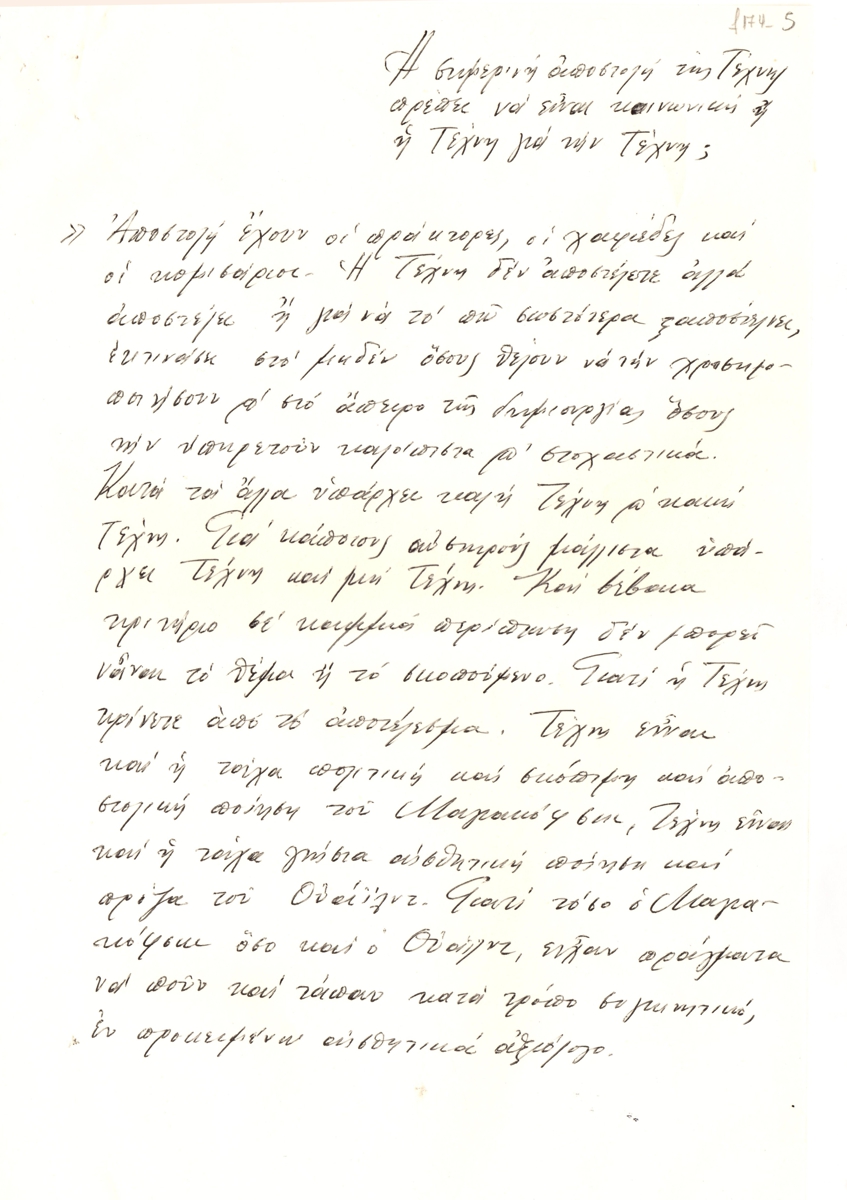 f174- 5
Ἡ σημερινή ἀποστολή τῆς Τέχνης
πρέπει νά εἶναι κοινωνική ἤ
ἡ Τέχνη γιά τήν Τέχνη;
» Ἀποστολή ἔχουν οἱ πράκτορες, οἱ χαφιέδες καί
οἱ κομισάριοι. Ἡ Τέχνη δέν ἀποστέλετε ἀλλά
ἀποστέλει ἤ γιά νά τό πῶ σωστότερα ξαποστέλνει,
ἐκτινάσει στό μηδέν ὅσους θέλουν νά τήν χρησιμο-
ποιήσουν κι' στό ἄπειρο τῆς δημιουργίας ὅσους
τήν ὑπηρετοῦν καλόπιστα κι' στοχαστικά.
Κατά τά ἄλλα ὑπάρχει καλή Τέχνη κι' κακή
Τέχνη. Γιά κάποιους αὐστηρούς μάλιστα ὑπά-
ρχει Τέχνη καί μή Τέχνη. Καί βέβαια
κριτήριο σέ καμμιά περίπτωση δέν μπορεῖ
νἆναι τό θέμα ἤ τό σκοπούμενο. Γιατί ἡ Τέχνη
κρίνετε ἀπό τό ἀποτέλεσμα. Τέχνη εἶναι
καί ἡ τάχα πολιτική καί σκόπιμη καί ἀπο-
στολική ποίηση τοῦ Μαγιακόφσκι, Τέχνη εἶναι
καί ἡ τάχα γνήσια αἰσθητική ποίηση καί
πρόζα τοῦ Οὐάϊλντ. Γιατί τόσο ὁ Μαγια-
κόφσκι ὅσο καί ὁ Οὐάϊλντ, εἶχαν πράγματα
νά ποῦν καί τἄπαν κατά τρόπο συγκινητικό,
ἐν προκειμένω αἰσθητικά ἀξιόλογο.